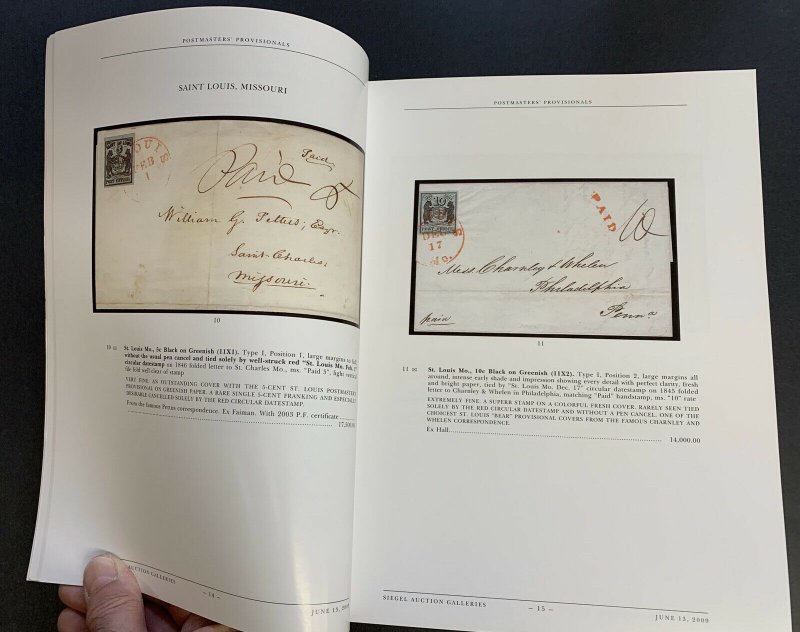 POSTMASTERS' PROVISIONALS
SAINT LOUIS, MISSOURI
OUIS
FEB
1
5
POST OFFICE
Paid
Paid 5
William G. Pettus, Esqr.
Saint Charles
Missouri
10
10 ✉ St. Louis Mo., 5c Black on Greenish (11X1). Type I, Position 1, large margins to
without the usual pen cancel and tied solely by well-struck red "St. Louis Mo. Feb. 1"
circular datestamp on 1846 folded letter to St. Charles Mo., ms. "Paid 5", light vertical
file fold well clear of stamp
VERY FINE. AN OUTSTANDING COVER WITH THE 5-CENT ST. LOUIS POSTMASTER'S
PROVISIONAL ON GREENISH PAPER. A RARE SINGLE 5-CENT FRANKING AND ESPECIALLY
DESIRABLE CANCELLED SOLELY BY THE RED CIRCULAR DATESTAMP.
From the famous Pettus correspondence. Ex Faiman. With 2003 P.F. certificate
SIEGEL AUCTION GALLERIES
– 14 –
JUNE 13, 2009
POSTMASTERS' PROVISIONALS
10
POST OFFICE
DEC
17
MO.
PAID
10
Mess. Charnley & Whelen
Philadelphia
Penna
paid
11
11 ✉ St. Louis Mo., 10c Black on Greenish (11X2). Type I, Position 2, large margins all
around, intense early shade and impression showing every detail with perfect clarity, fresh
and bright paper, tied by "St. Louis Mo. Dec. 17" circular datestamp on 1845 folded
letter to Charnley & Whelen in Philadelphia, matching "Paid" handstamp, ms. "10" rate
EXTREMELY FINE. A SUPERB STAMP ON A COLORFUL FRESH COVER. RARELY SEEN TIED
SOLELY BY THE RED CIRCULAR DATESTAMP AND WITHOUT A PEN CANCEL. ONE OF THE
CHOICEST ST. LOUIS "BEAR" PROVISIONAL COVERS FROM THE FAMOUS CHARNLEY AND
WHELEN CORRESPONDENCE.
Ex Hall 14,000.00
SIEGEL AUCTION GALLERIES
– 15 –
JUNE 13, 2009